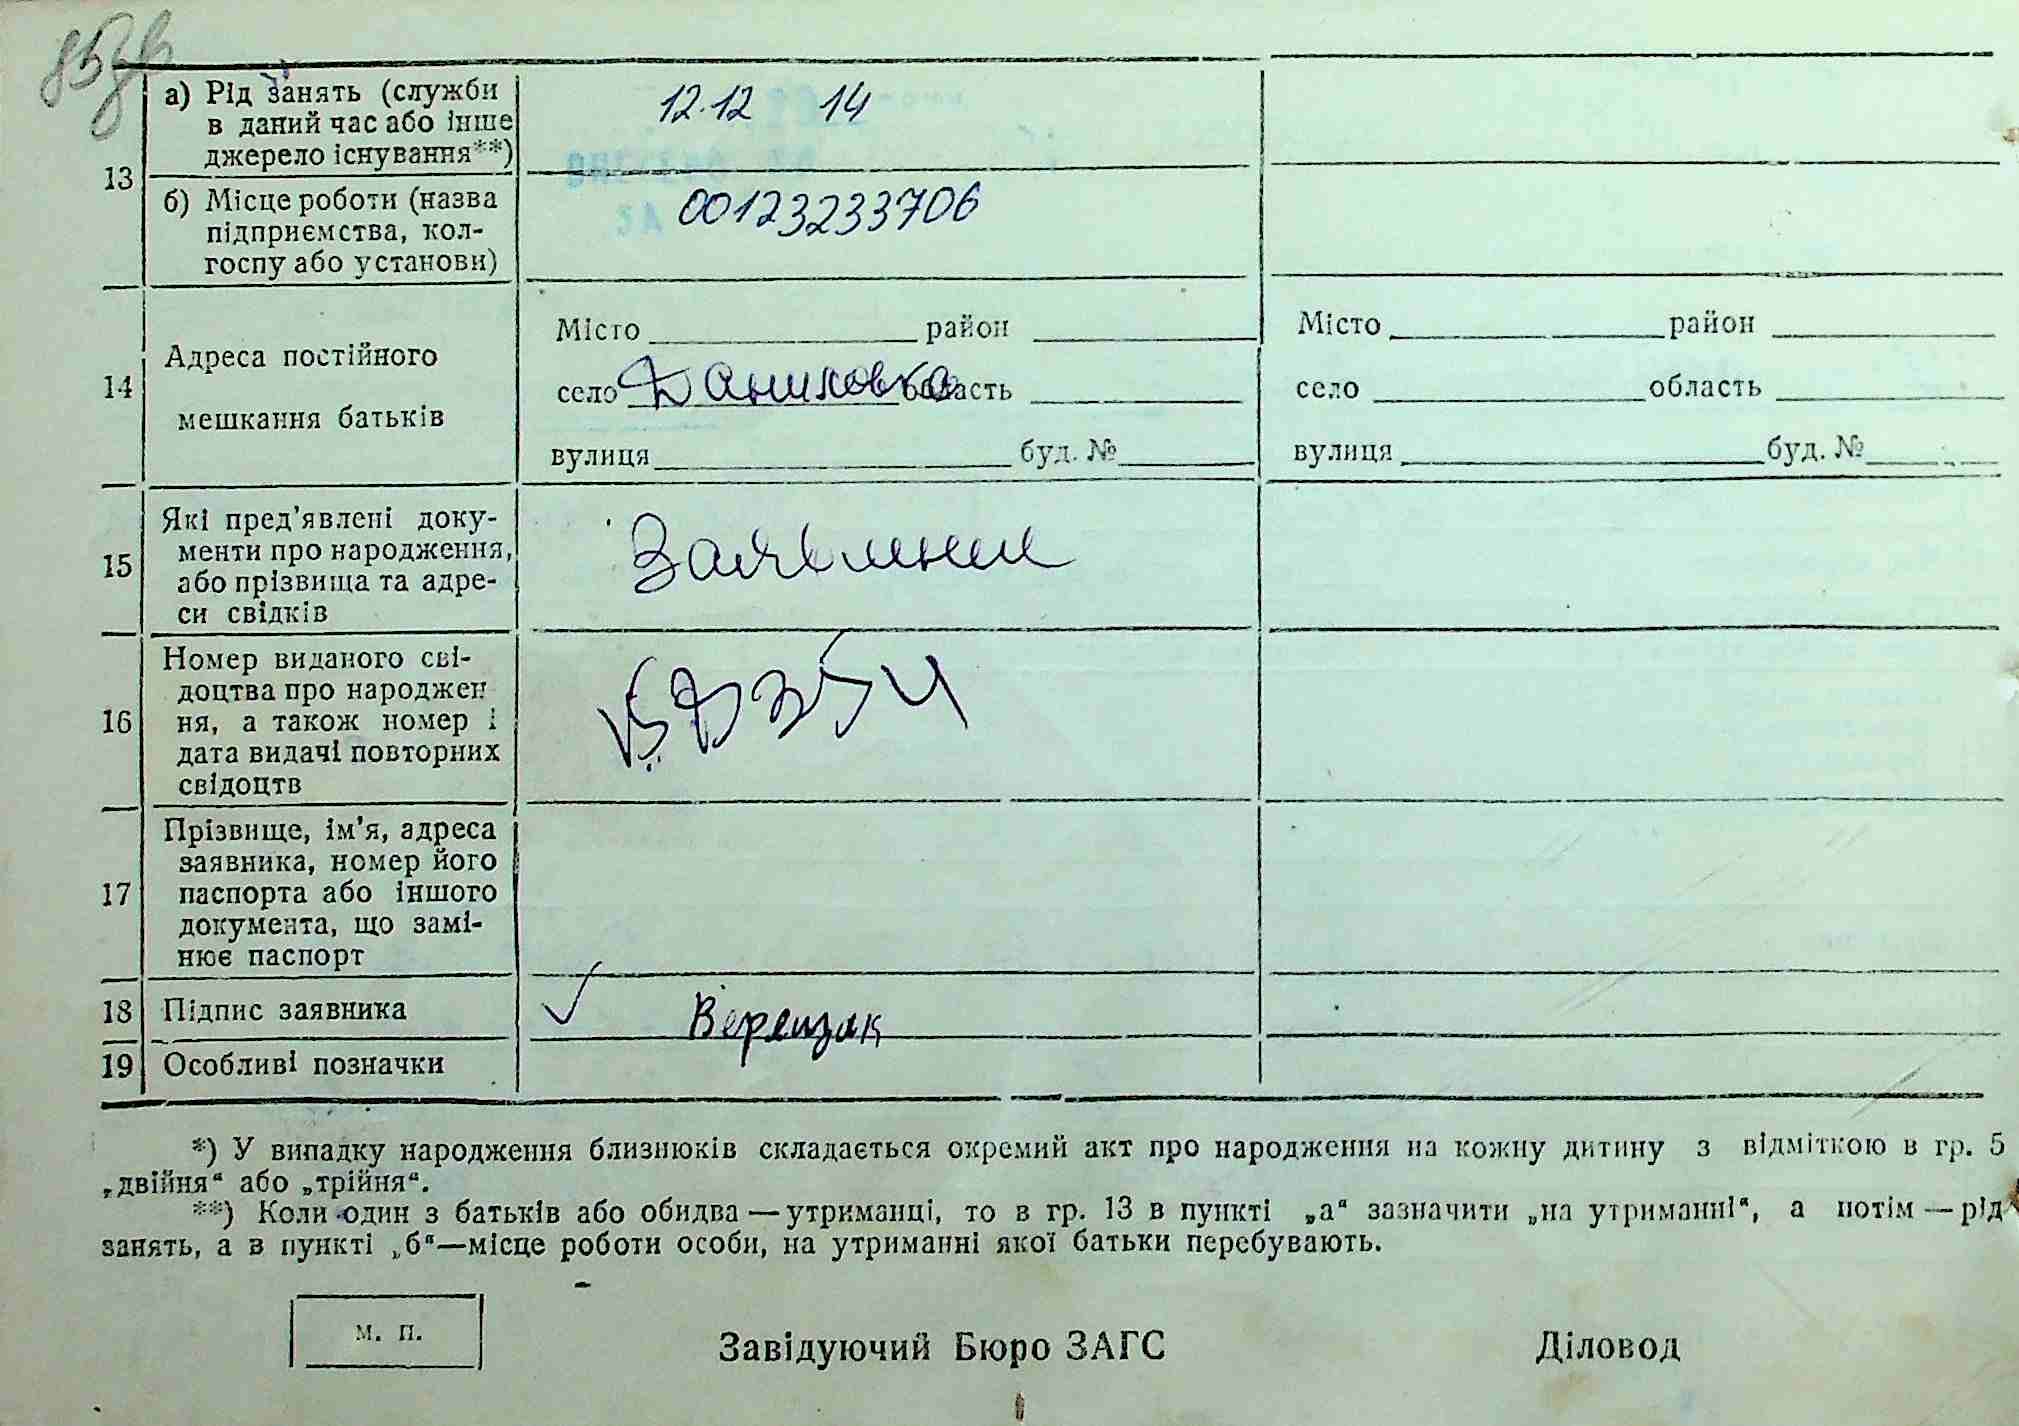 а) Рід занять (служби
в даний час або інше
джерело існування**)
12.12 14
13
б) Місце роботи (назва
підприємства, кол-
госпу або установи)
00123233706
14
Адреса постійного
мешкання батьків
Місто район
село Даниловка область
вулиця буд. №
Місто район
село область
вулиця буд. №
15
Які пред'явлені доку-
менти про народження,
або прізвища та адре-
си свідків
16
Номер виданого сві-
доцтва про народжен
ня, а також номер і
дата видачі повторних
свідоцтв
17
Прізвище, ім'я, адреса
заявника, номер його
паспорта або іншого
документа, що замі-
нює паспорт
18 Підпис заявника
Верещак
19 Особливі позначки
*) У випадку народження близнюків складається окремий акт про народження на кожну дитину з відміткою в гр. 5
„двійня“ або „трійня“.
**) Коли один з батьків або обидва — утриманці, то в гр. 13 в пункті „а“ зазначити „на утриманні“, а потім — рід
занять, а в пункті „б“—місце роботи особи, на утриманні якої батьки перебувають.
м. п.
Завідуючий Бюро ЗАГС
Діловод